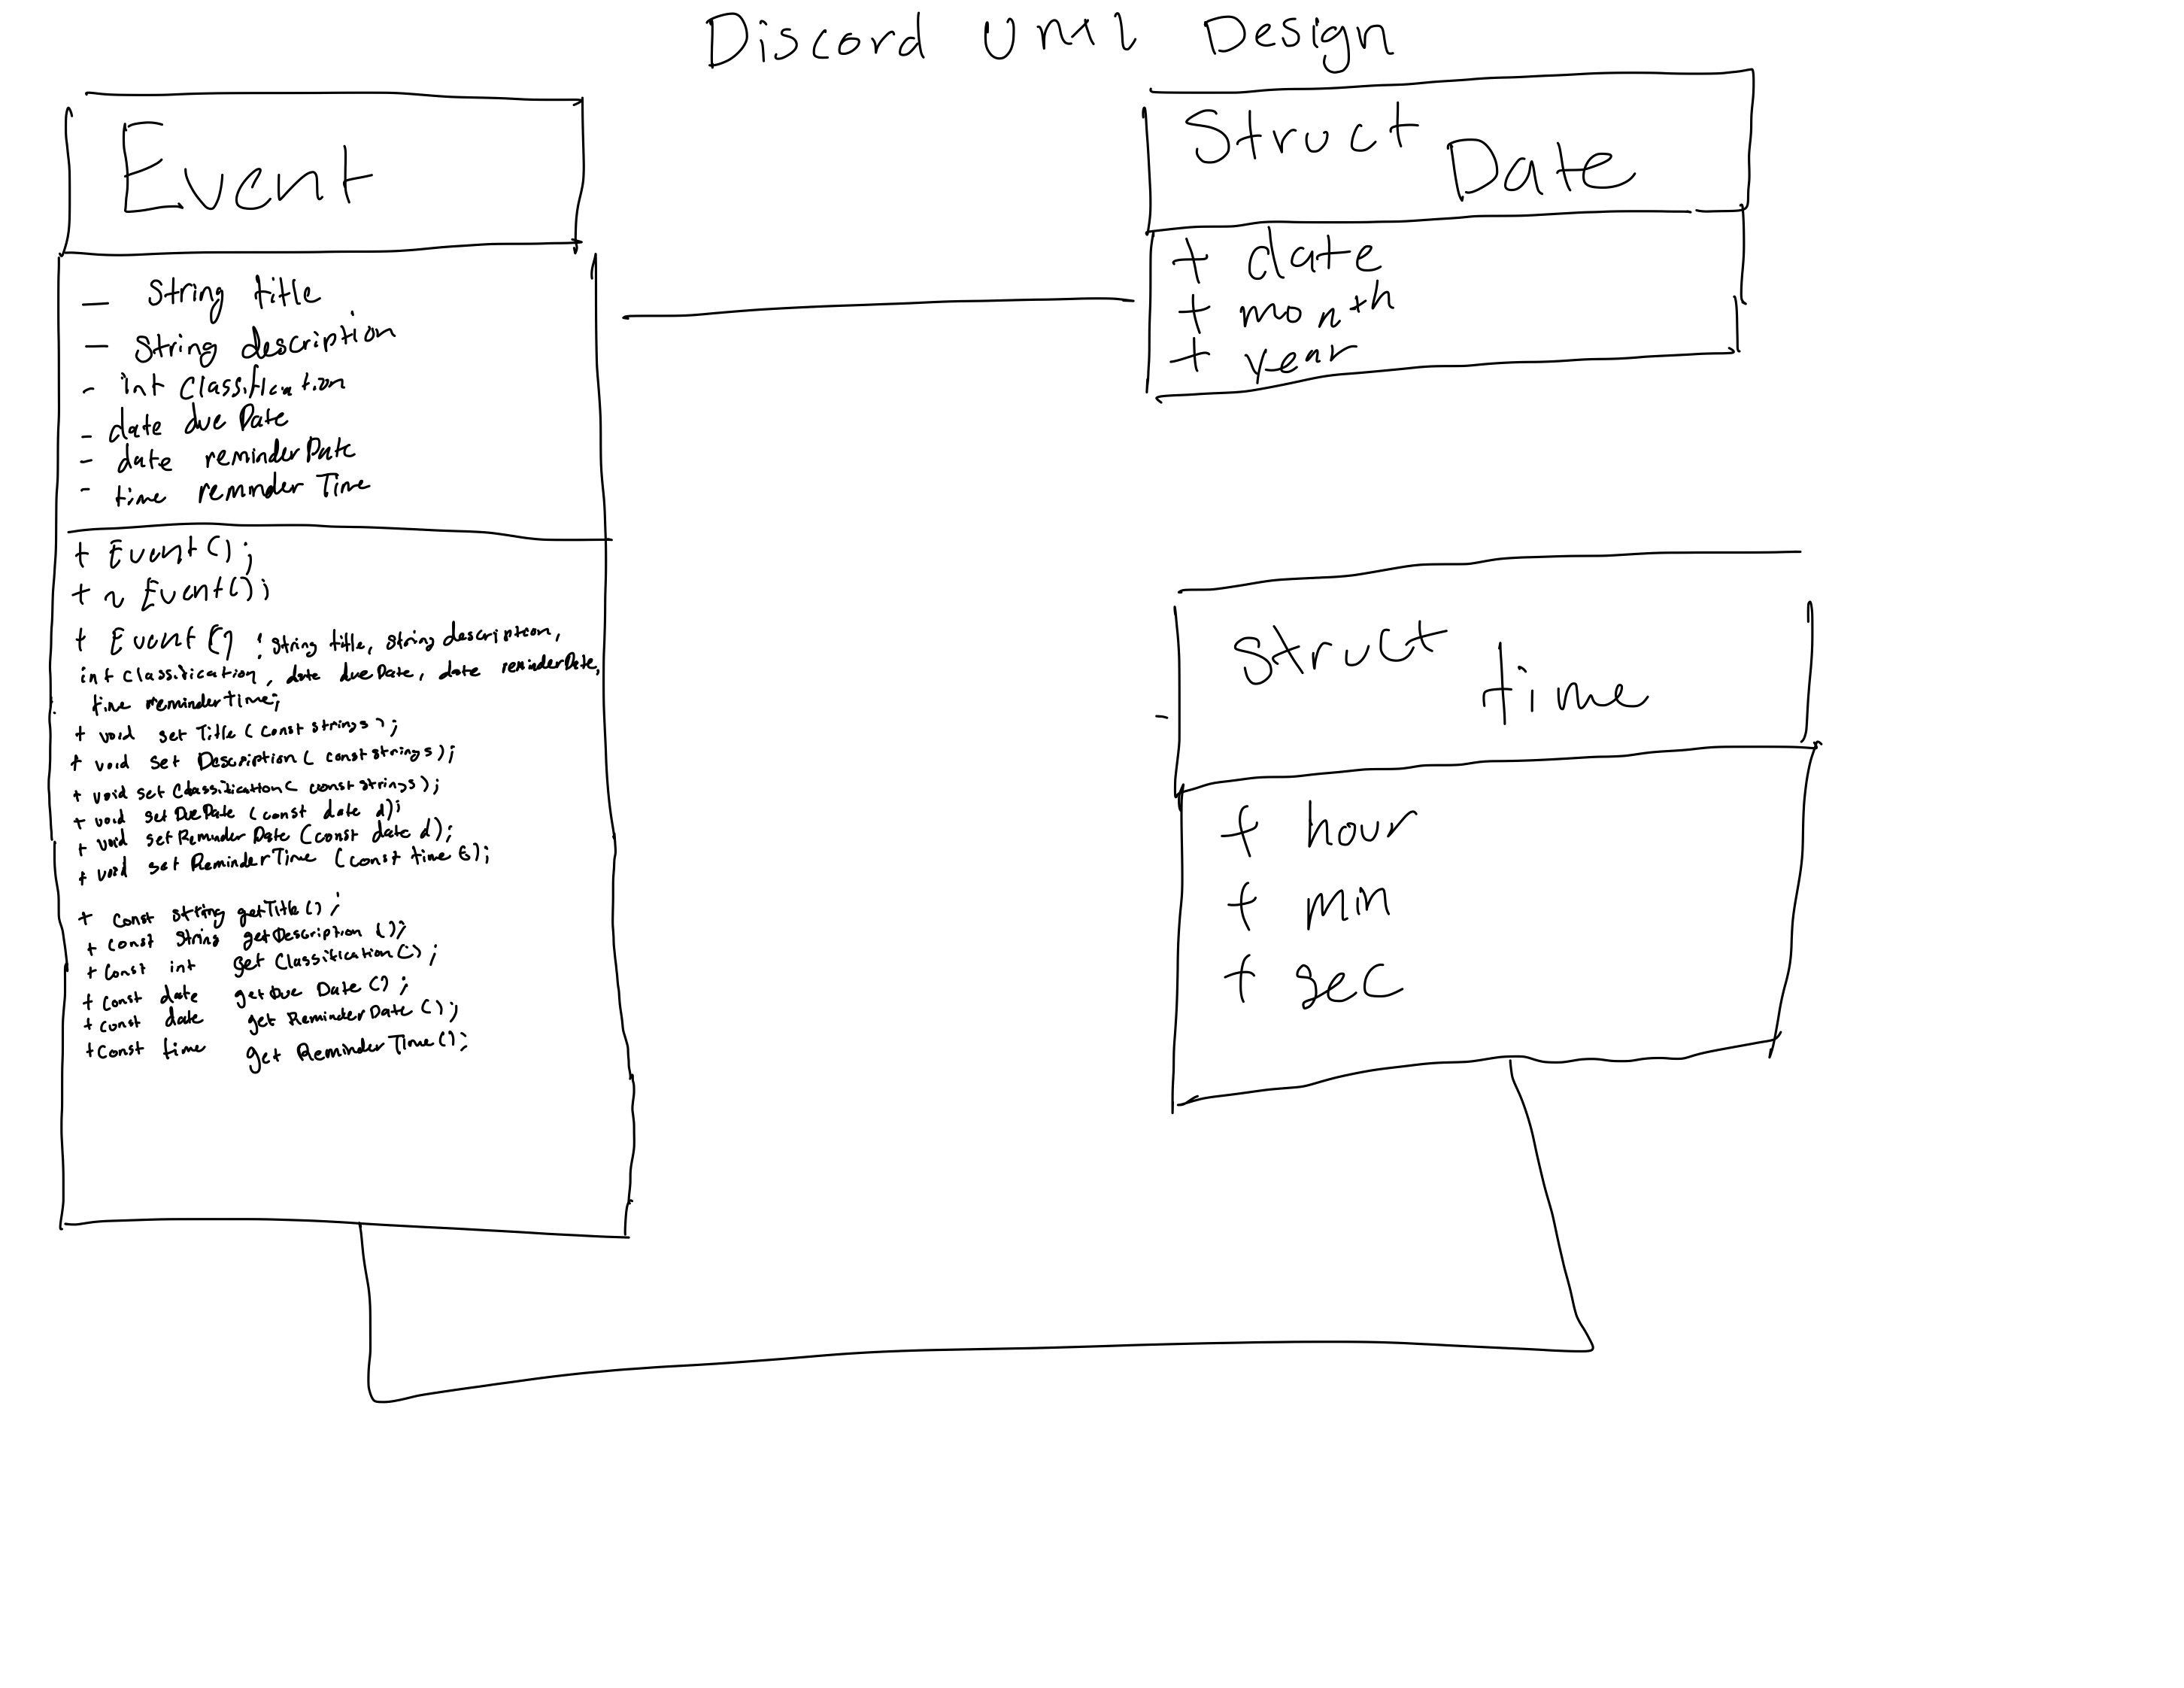 Discord UML Design
Event
- String title
- String description
- int Classification
- date dueDate
- date reminderDate
- time reminderTime
+ Event();
+ ~ Event();
+ Event() : String title, String description,
int classification, date dueDate, date reminderDate,
time reminderTime;
+ void setTitle (const string s);
+ void set Description (const string s);
+ void set Classification (const string s);
+ void set DueDate (const date d);
+ void set Reminder Date (const date d);
+ void set ReminderTime (const time t);
+ const string getTitle ();
+ const String getDescription ();
+ Const int get Classification ();
+ const date get Due Date ();
+ const date get ReminderDate ();
+ Const time get ReminderTime ();
Struct
Date
+ date
+ month
+ year
Struct
time
+ hour
+ min
+ sec